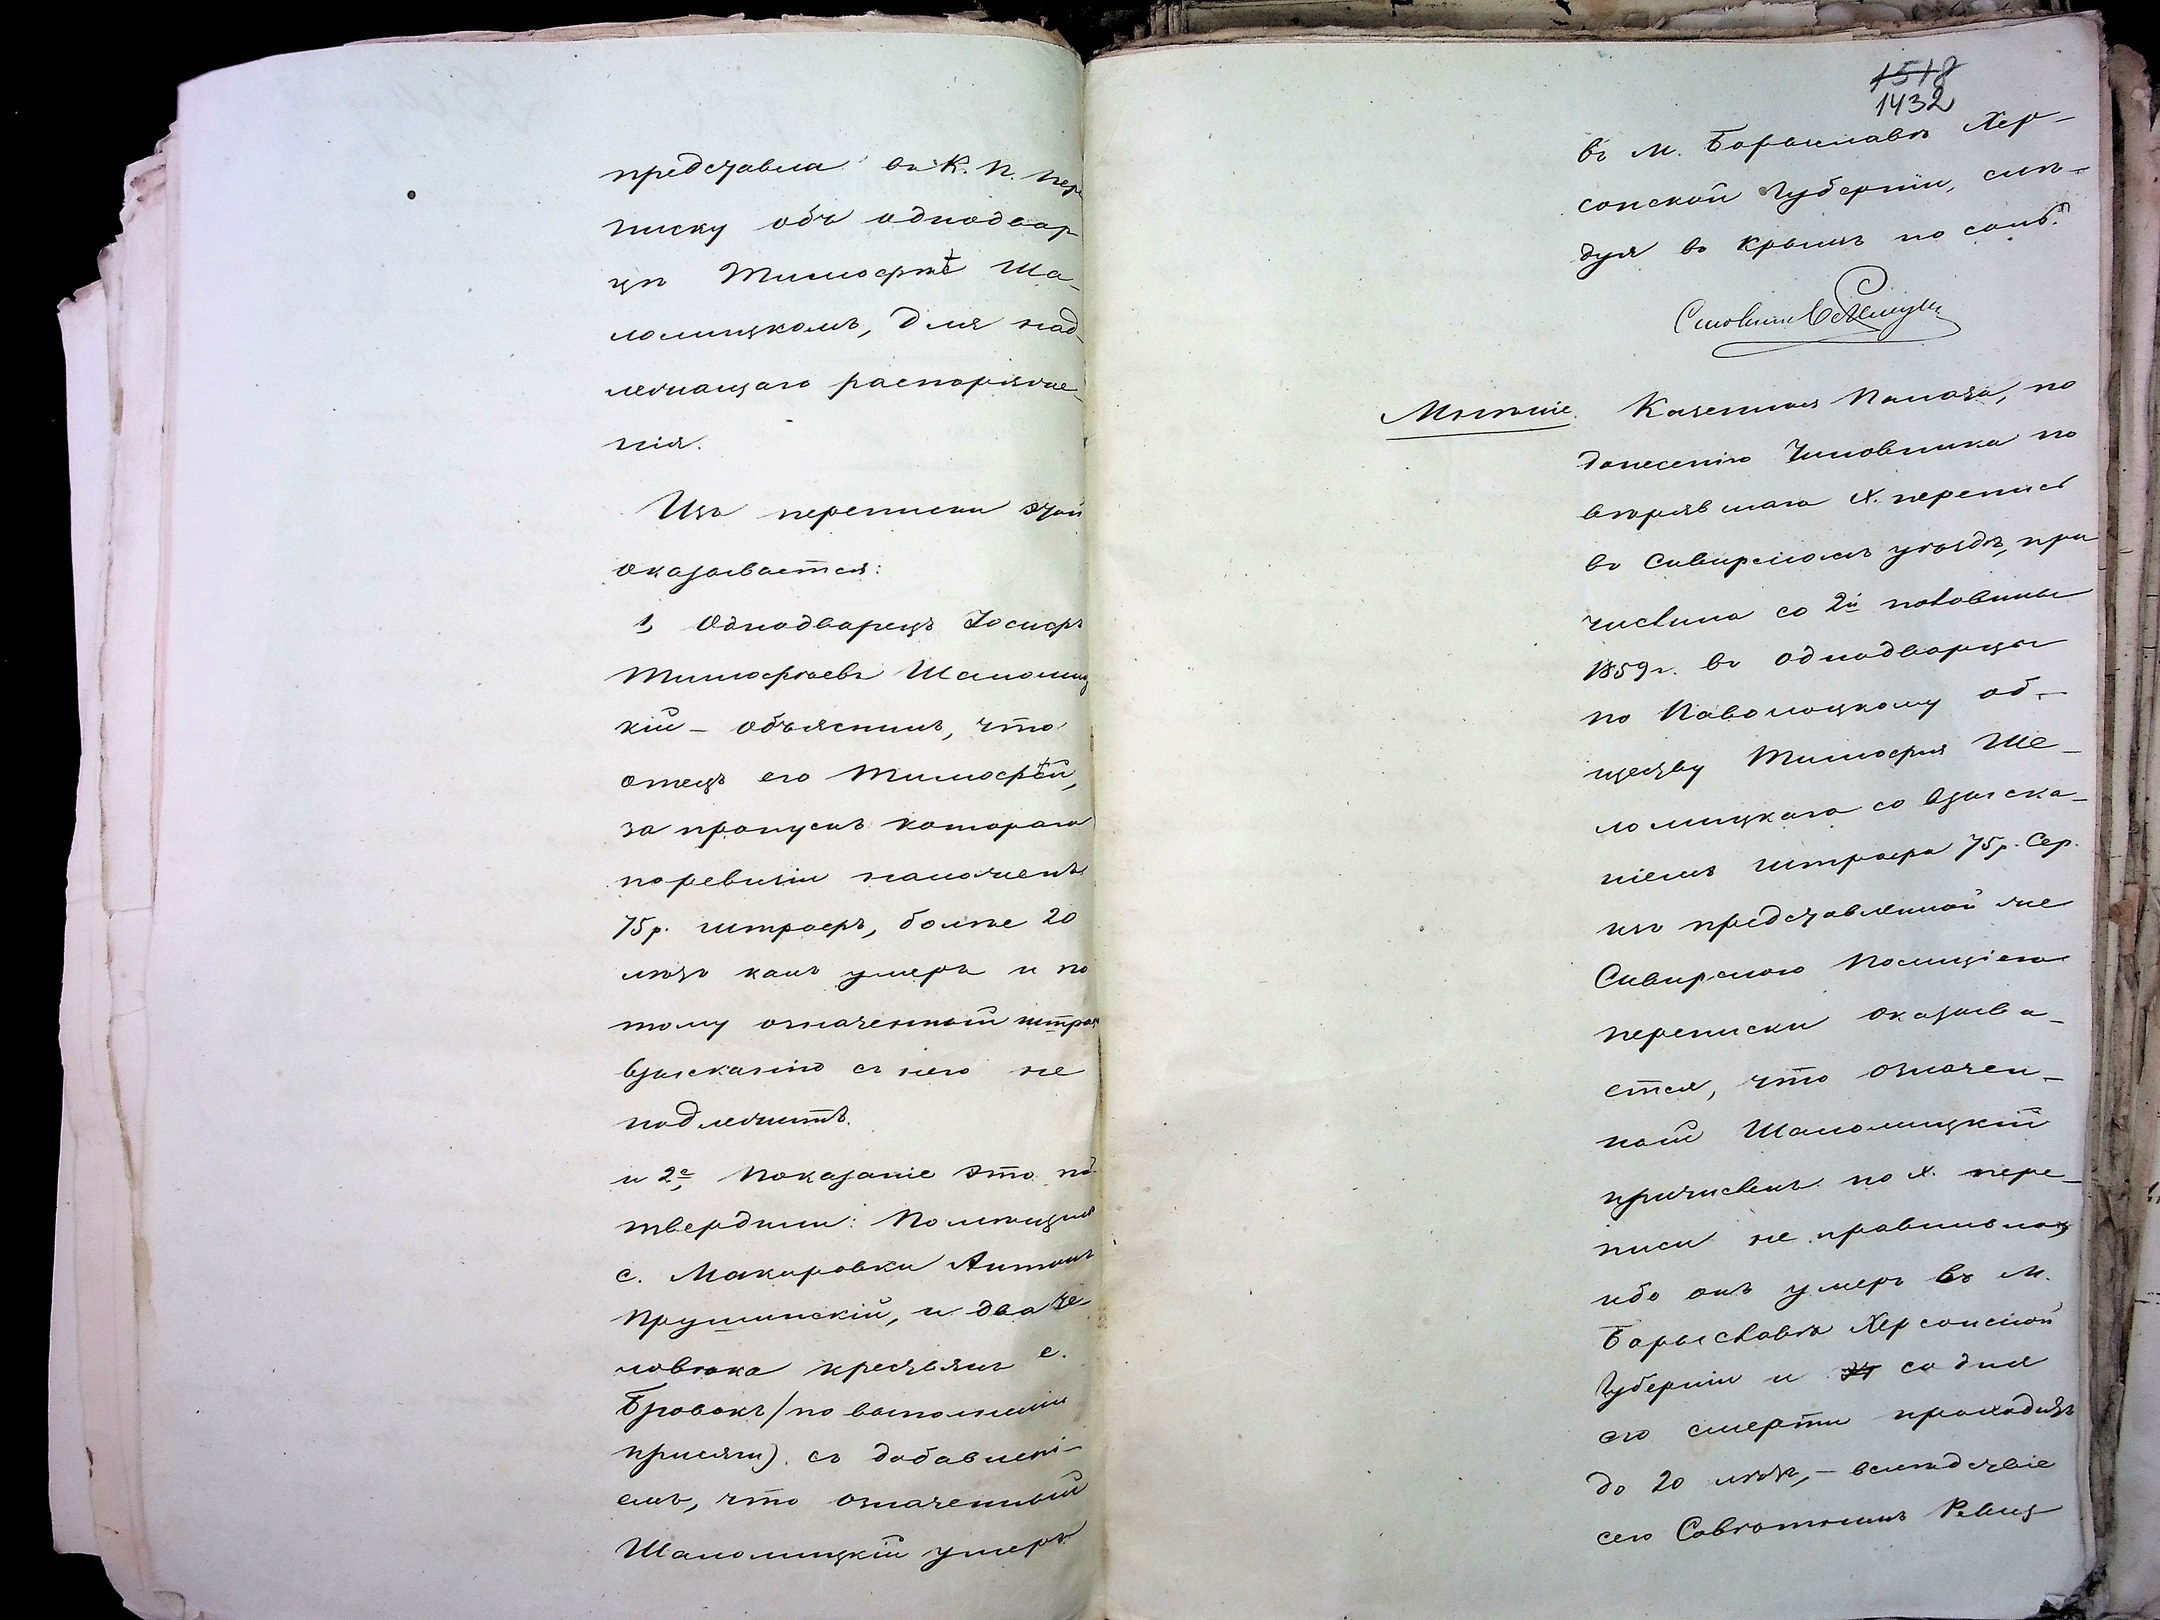 представила въ К. П. пере
писку объ однодвор
цѣ Тимофеѣ Ша-
ломицкомъ, для над-
лежащаго распоряже-
нія.
Изъ переписки этой
оказывается:
1, Однодворецъ Іосифъ
Тимофѣевъ Шаломиц
кій – объяснилъ, что
отецъ его Тимофѣй,
за пропускъ котораго
по ревизіи наложенъ
75 р. штрафъ, болѣе 20
лѣтъ какъ умеръ и по
тому означенный штраф
взысканію съ него не
подлежитъ.
и 2е, Показаніе это по
твердили: Помѣщикъ
с. Макаровки Антонъ
Прушинскій, и два че-
ловѣка крестьянъ с.
Бровокъ /по выполненіи
присяги). съ добавлені-
емъ, что означенный
Шаломицкій умеръ
1518
1432
въ м. Бориславѣ Хер-
сонской Губерніи, слѣ-
дуя въ Крымъ по соль.
Мнѣніе. Казенная Палата, по
донесенію Чиновника по
вѣрявшаго X. перепись
въ Сквирскомъ уѣздѣ, при
числила со 2й половины
1859 г. въ однодворцы
по Паволоцкому об-
ществу Тимофея Ше-
ломицкаго со взыска-
ніемъ штрафа 75 р. Сер.
изъ представленной же
Сквирскою Полиціею
переписки оказыва-
ется, что означен-
ный Шаломицкій
причисленъ по X. пере-
писи не правильно,
ибо онъ умеръ въ м.
Бориславѣ Херсонской
Губерніи и со дня
его смерти проходитъ
до 20 лѣтъ, – вслѣдствіе
сего Совѣтникъ Ревиз